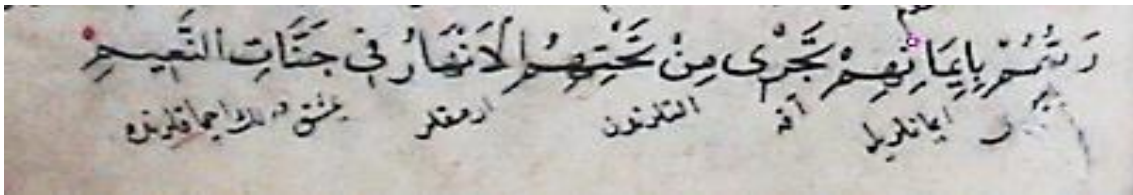 رَبُّهُمْ بِإِيمَانِهِمْ تَجْرِى مِنْ تَحْتِهِمُ الْاَنْهَارُ فِى جَنَّاتِ النَّعِيمِ
ايمانلريله آقه التلرندن ارمقلر